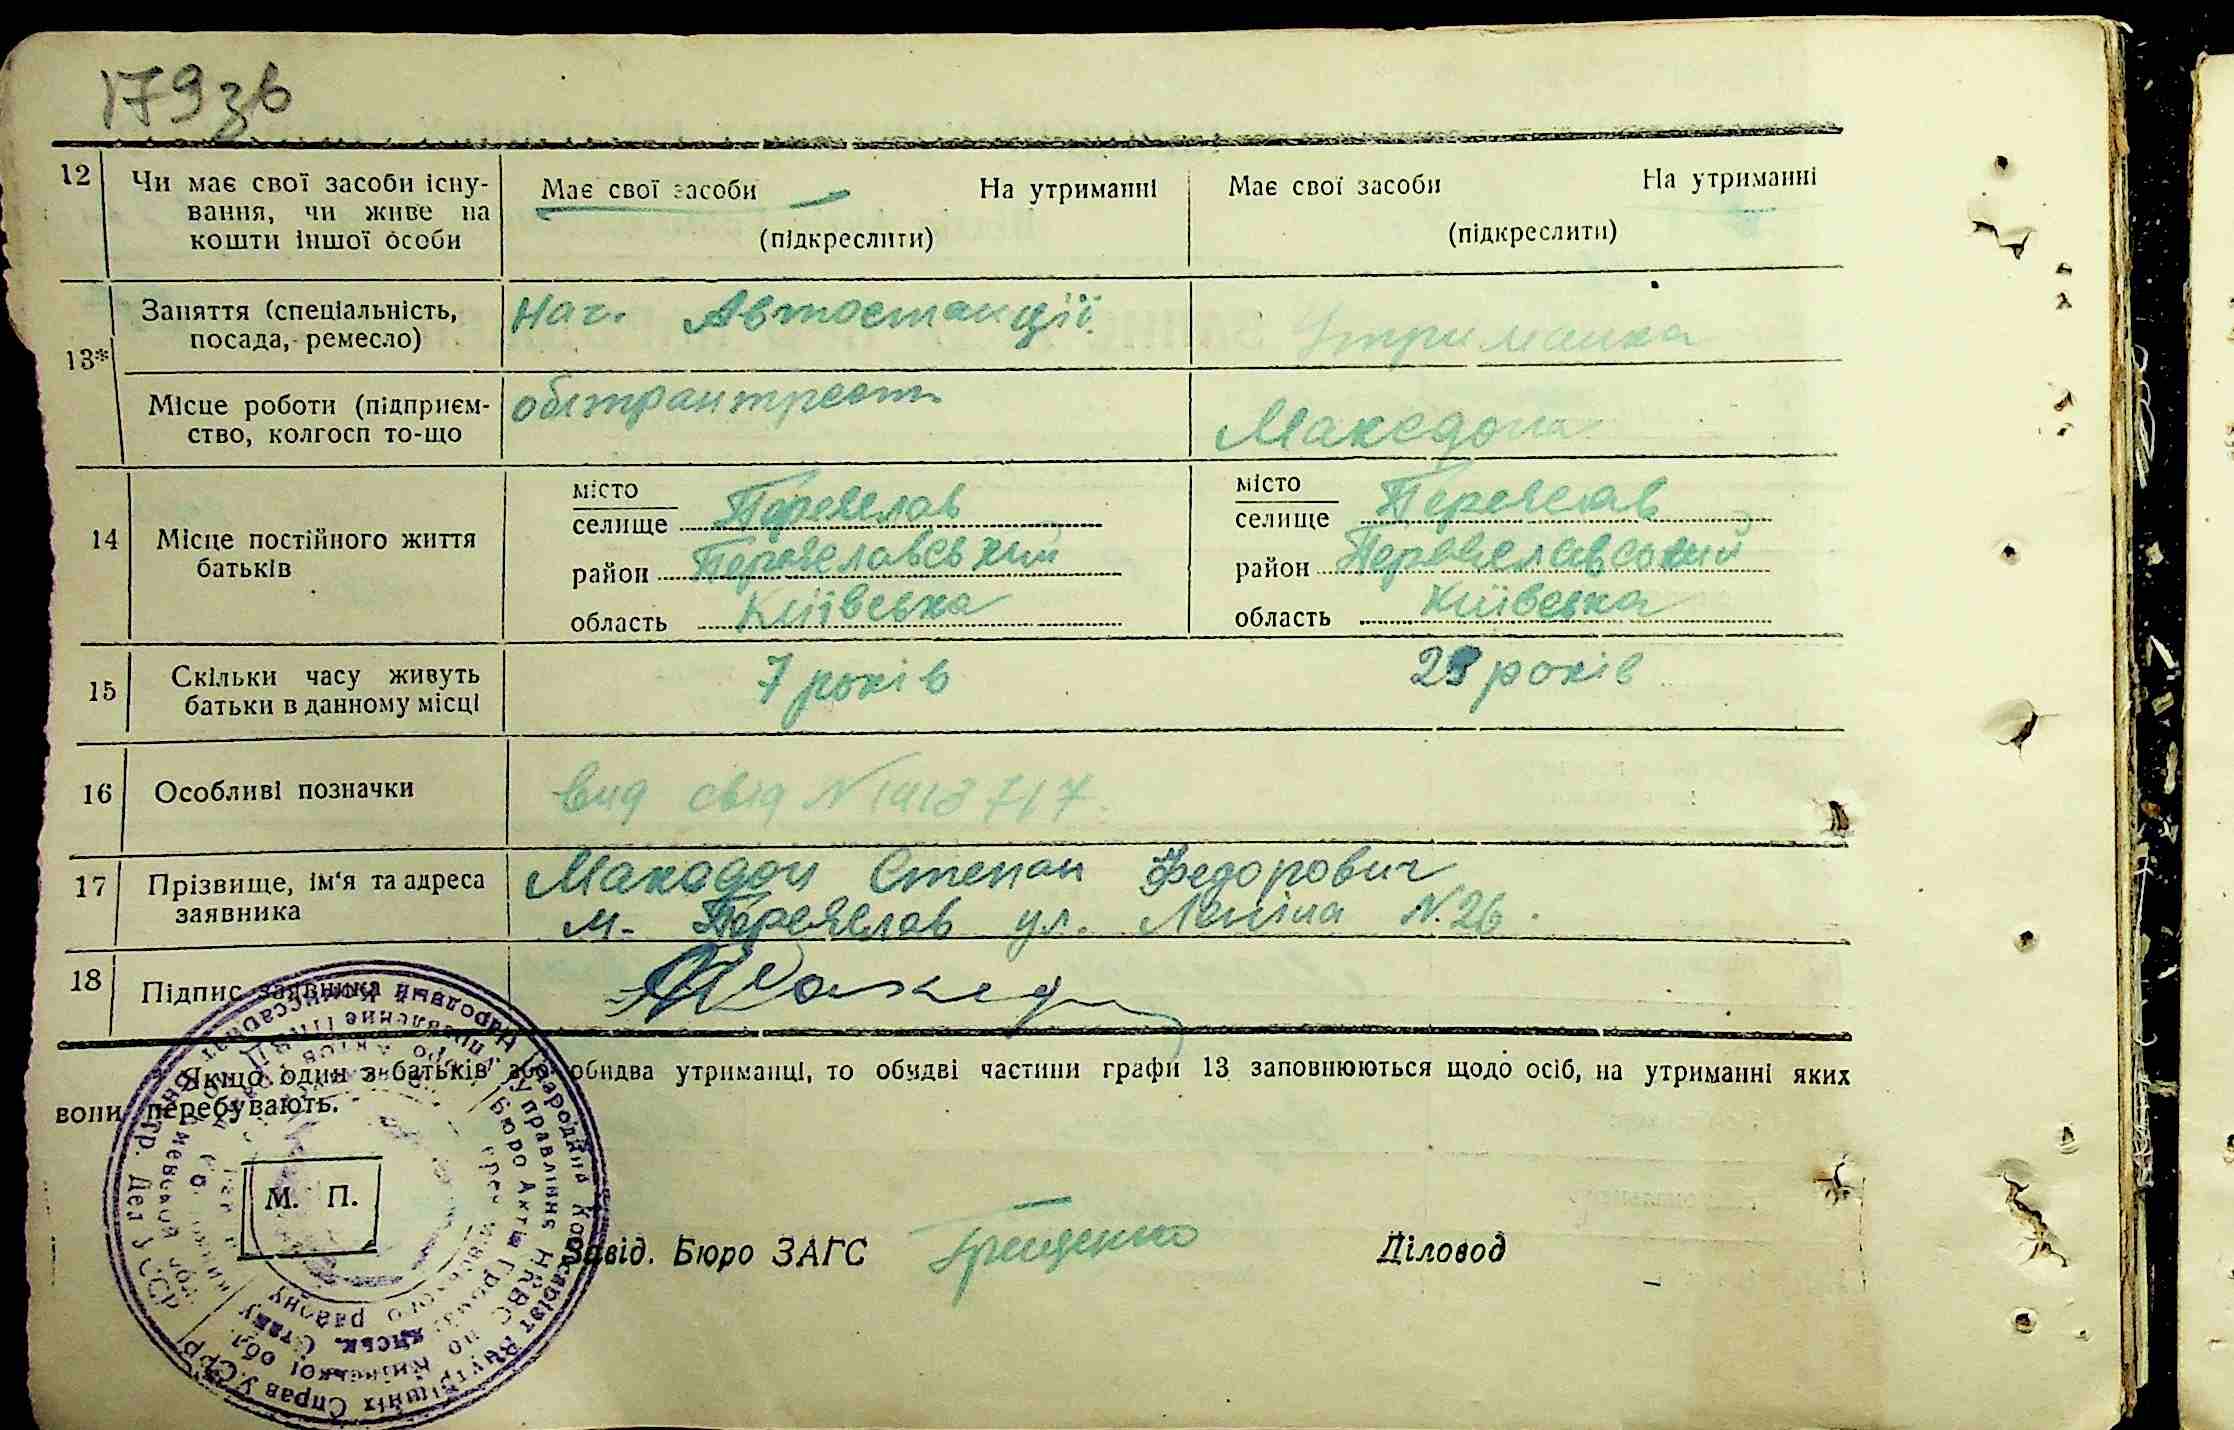 179зв
12 Чи має свої засоби існу- Має свої засоби На утриманні Має свої засоби На утриманні
вання, чи живе на
кошти іншої особи (підкреслити) (підкреслити)
13* Заняття (спеціальність, Нач. Автостанції Утриманка
посада, ремесло)
Місце роботи (підприєм- облтрантрест Македона
ство, колгосп то-що
14 Місце постійного життя батьків
місто Переяслав місто Переяслав
селище селище
район Переяславський район Переяславський
область Київська область Київська
15 Скільки часу живуть 7 років років
батьки в данному місці
16 Особливі позначки вид свід N
17 Прізвище, ім'я та адреса Македон Степан Федорович
заявника м. Переяслав ул. Леніна N.26.
18 Підпис заявника
Якщо один з батьків або обидва утриманці, то обидві частини графи 13 заповнюються щодо осіб, на утриманні яких
вони перебувають.
М. П.
Завід. Бюро ЗАГС Грищенко Діловод
Народній Комісаріят Внутрішніх Справ УСРР